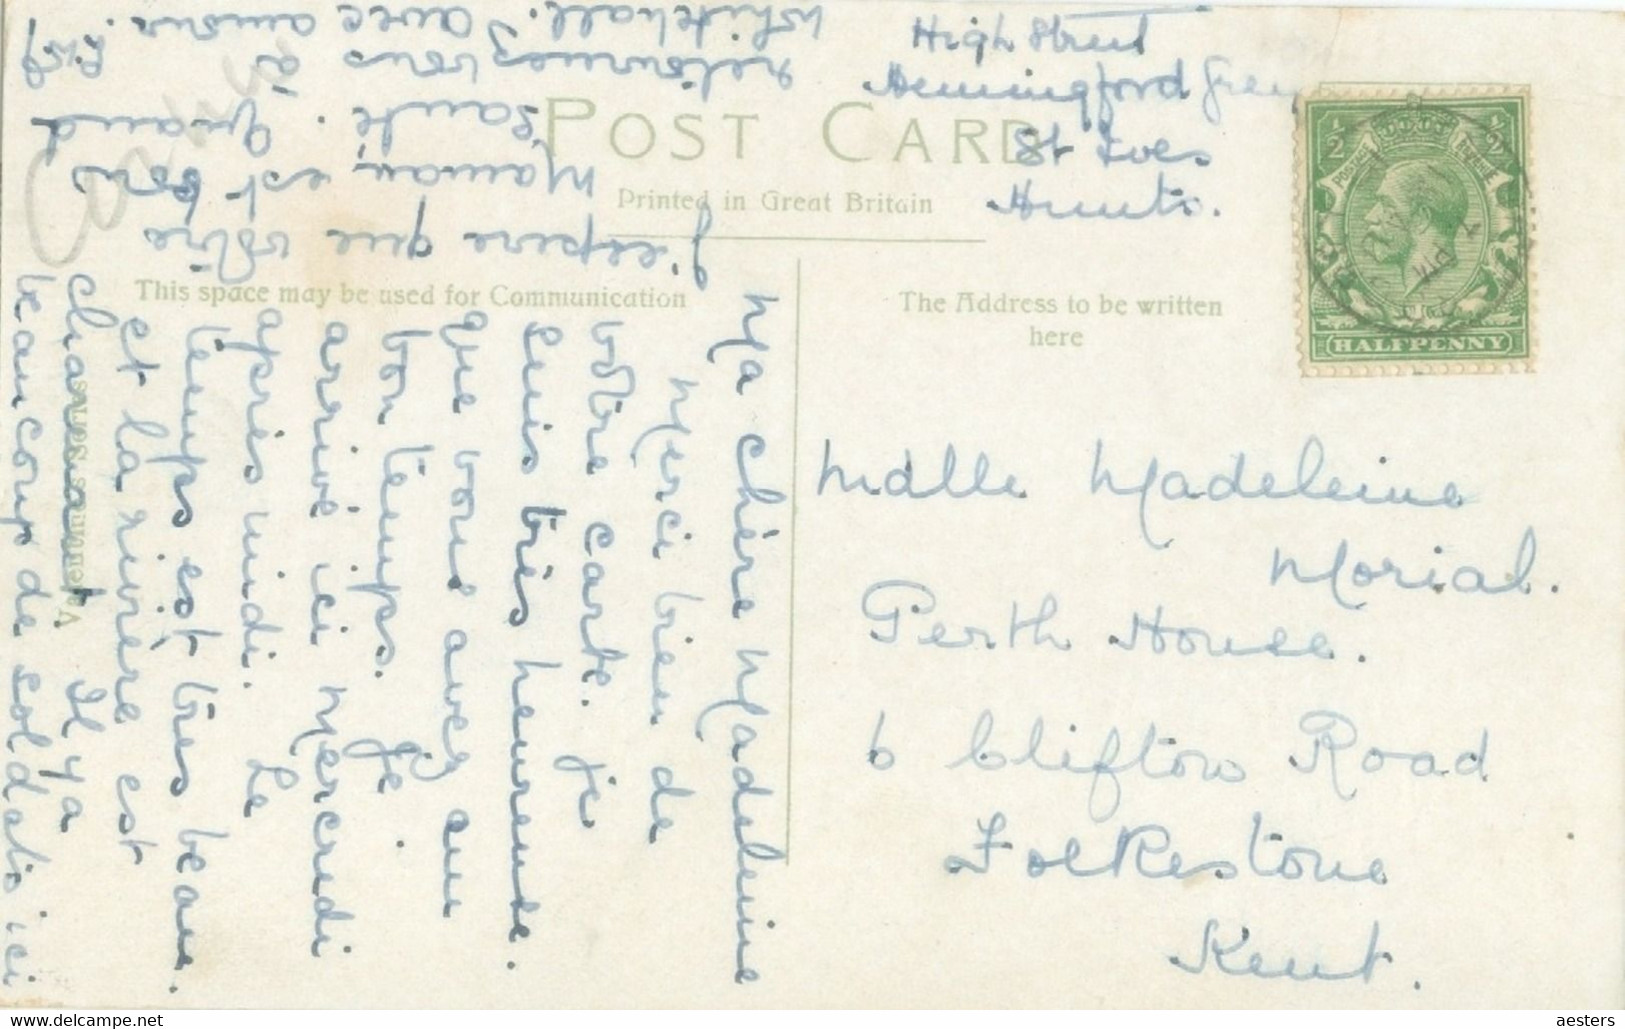 High Street
Hemingford Grey
St Ives
Hunts.
POST CARD
Printed in Great Britain
This space may be used for Communication
The Address to be written
here
Valentines Series
1/2
1/2
POSTAGE
REVENUE
HALFPENNY
Mdlle Madeleine
Morial.
Perth House.
6 Clifton Road
Folkestone
Kent.
Ma chère Madeleine
Merci bien de
votre carte. je
suis très heureuse.
que vous avez au
bon temps. Je
arrivé ici Mercredi
après midi. Le
temps est très beau.
et la rivière est
charmant Il y a
beaucoup de soldats ici
J'espère que votre
Maman est bons
santé. Quand
retournez vous à
Whitehall. avec amour.
aesters